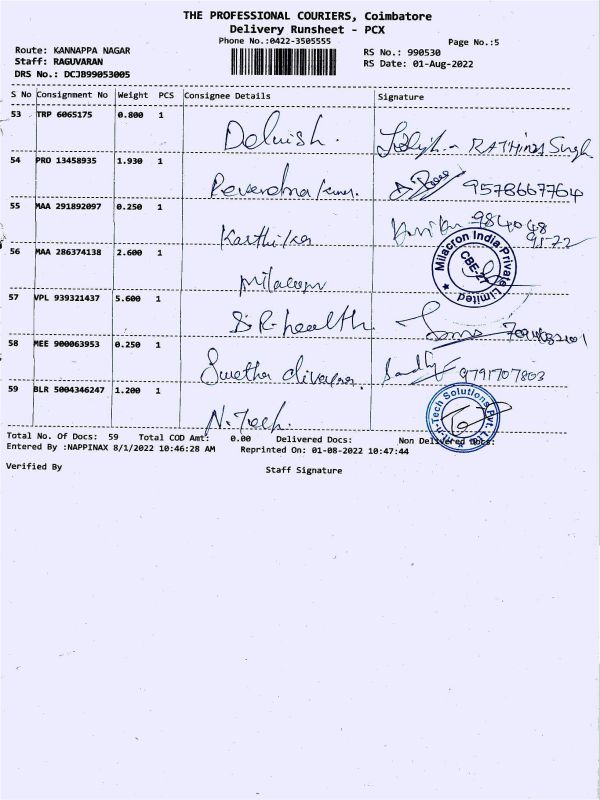 THE PROFESSIONAL COURIERS, Coimbatore
Delivery Runsheet - PCX
Phone No.:0422-3505555 Page No.:5
Route: KANNAPPA NAGAR RS No.: 990530
Staff: RAGUVARAN RS Date: 01-Aug-2022
DRS No.: DCJB99053005
S No Consignment No Weight PCS Consignee Details Signature
53 TRP 6065175 0.800 1
RATHINA Singh
54 PRO 13458935 1.930 1
9578667764
55 MAA 291892097 0.250 1
Karthika 984048
9172
56 MAA 286374138 2.600 1
Milacron India Private Limited
CBE-27
milacron
57 VPL 939321437 5.600 1
S.R. health
58 MEE 900063953 0.250 1
Swetha 9791707803
59 BLR 5004346247 1.200 1
N.Tech.
n-Tech Solutions Pvt. Ltd.
Total No. Of Docs: 59 Total COD Amt: 0.00 Delivered Docs: Non Delivered Docs:
Entered By :NAPPINAX 8/1/2022 10:46:28 AM Reprinted On: 01-08-2022 10:47:44
Verified By Staff Signature